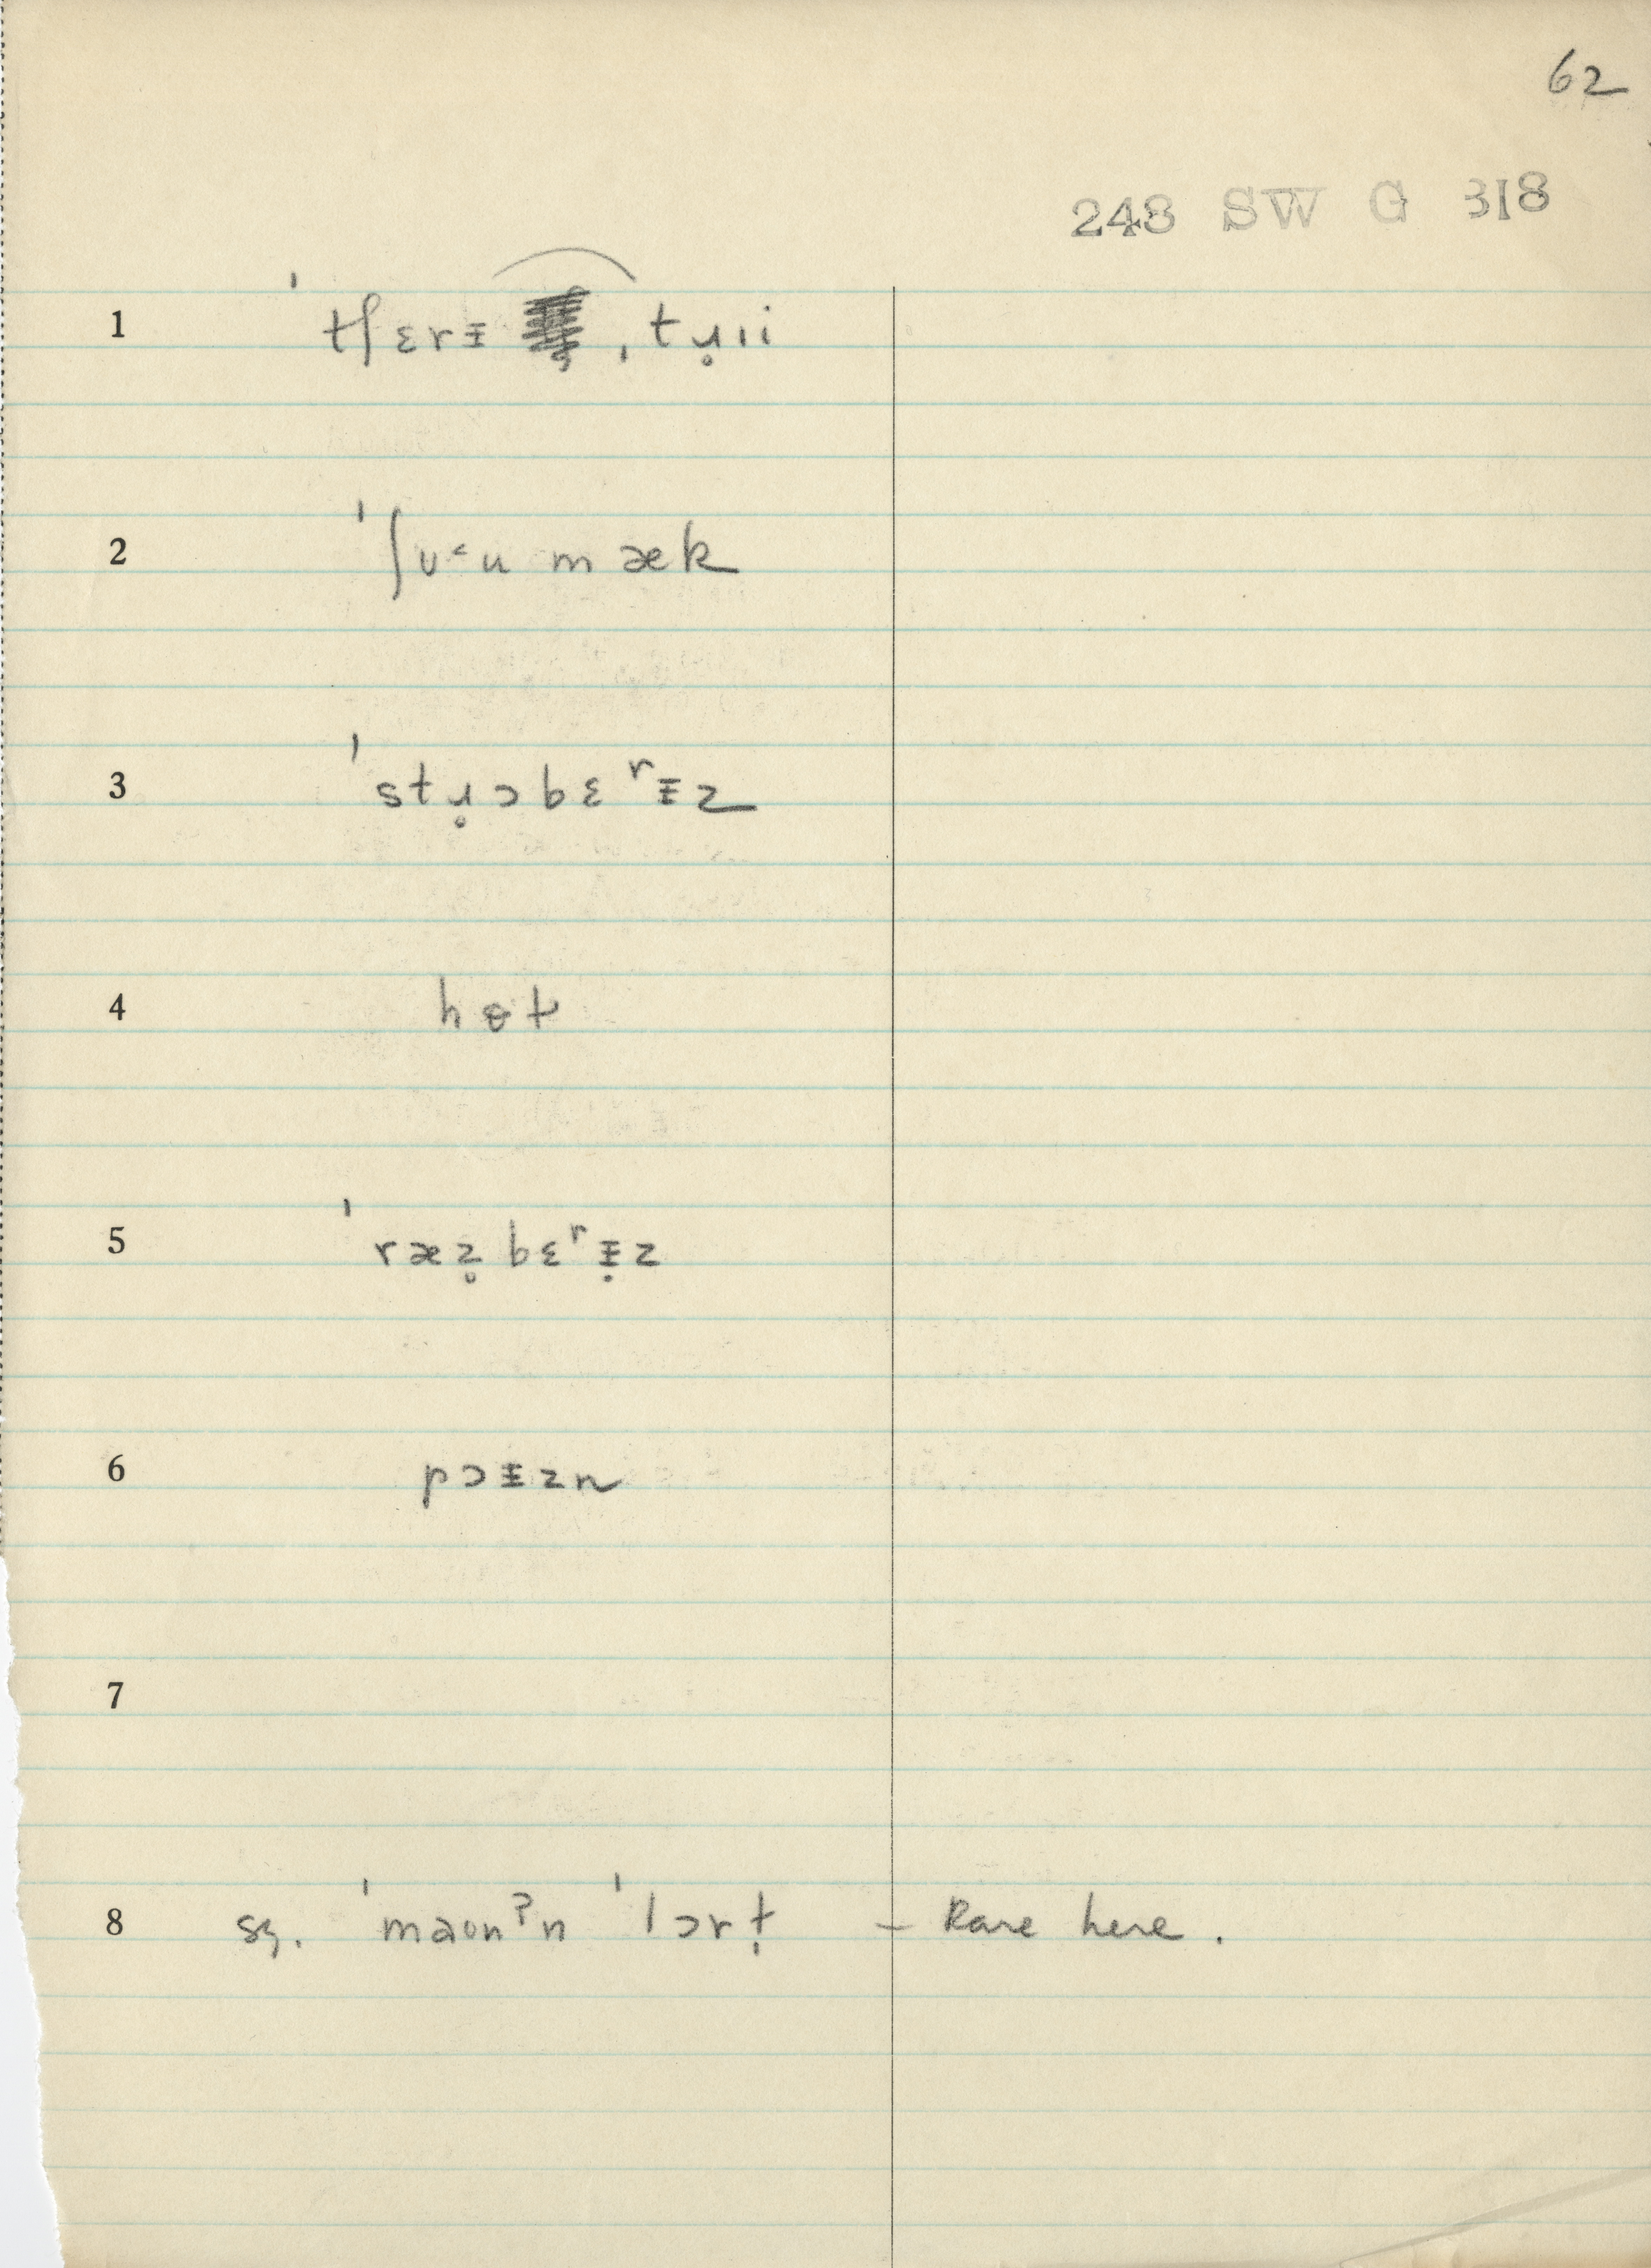 62
248 SW G 318
1 ˈtʃɛrɨ ˌtɹ̥ɪi
2 ˈʃʊ˂u mæk
3 ˈstɹ̥ɔbɛʳɨz
4 hɵt
5 ˈræz̥bɛʳɨ̣z
6 pɔɨzn
7
8 sq. ˈmaʊnˀn ˈlɔrṭ – Rare here.